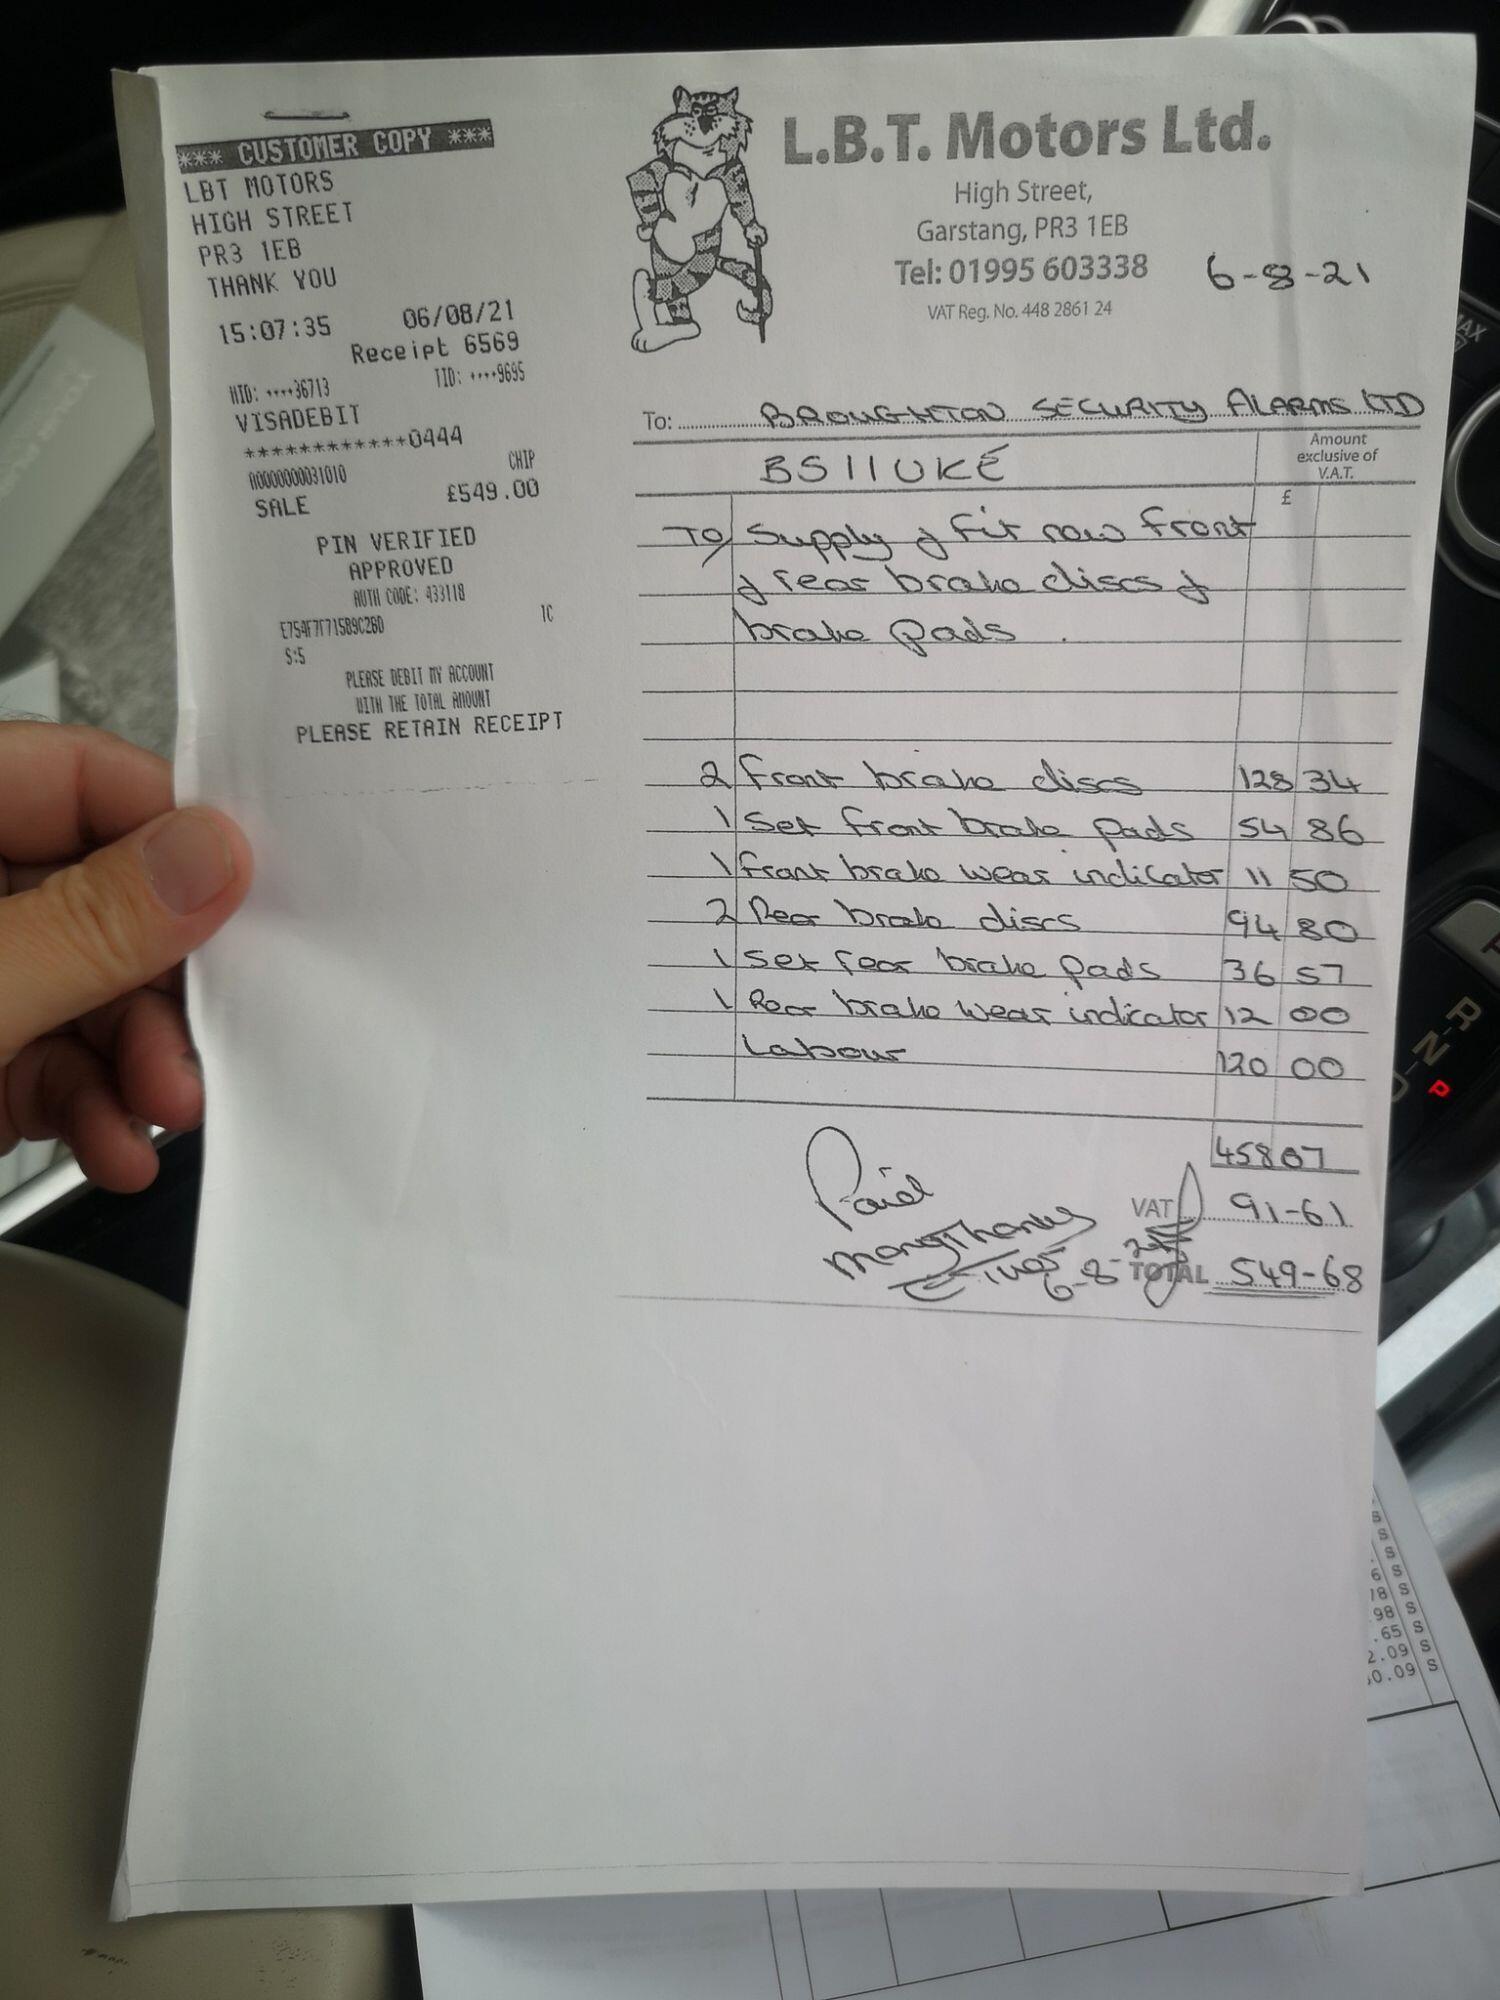 *** CUSTOMER COPY ***
LBT MOTORS
HIGH STREET
PR3 1EB
THANK YOU
15:07:35 06/08/21
Receipt 6569
MID: ****36713 TID: ****9695
VISADEBIT
************0444
A0000000031010 CHIP
SALE £549.00
PIN VERIFIED
APPROVED
AUTH CODE: 433118
TC
S:5
PLEASE DEBIT MY ACCOUNT
WITH THE TOTAL AMOUNT
PLEASE RETAIN RECEIPT
L.B.T. Motors Ltd.
High Street,
Garstang, PR3 1EB
Tel: 01995 603338
6-8-21
VAT Reg. No. 448 2861 24
To: BROUGHTON SECURITY ALARMS LTD
BS11UKE
Amount
exclusive of
V.A.T.
£
TO Supply & fit new front
& rear brake discs &
brake pads.
2 front brake discs 128 34
1 Set front brake pads 54 86
1 front brake wear indicator 11 50
2 Rear brake discs 94 80
1 Set rear brake pads 36 57
1 Rear brake wear indicator 12 00
Labour 120 00
458 07
Paid
Many Thanks
VAT 91-61
6-8-21
TOTAL 549-68
R
N
P
D
MAX
S
S
S
6 S
78 S
.98 S
.65 S
2.09 S
0.09 S